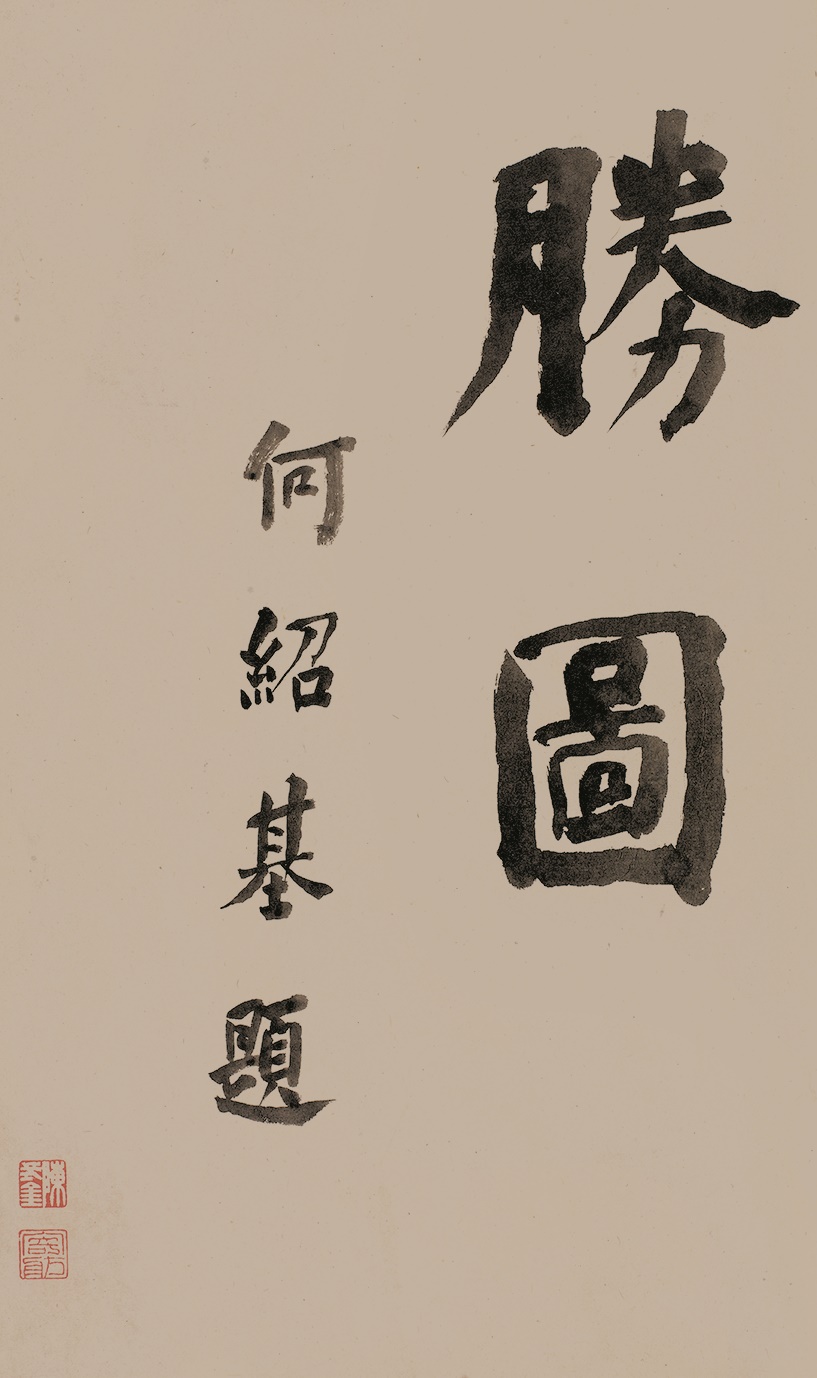 勝圖
何紹基題